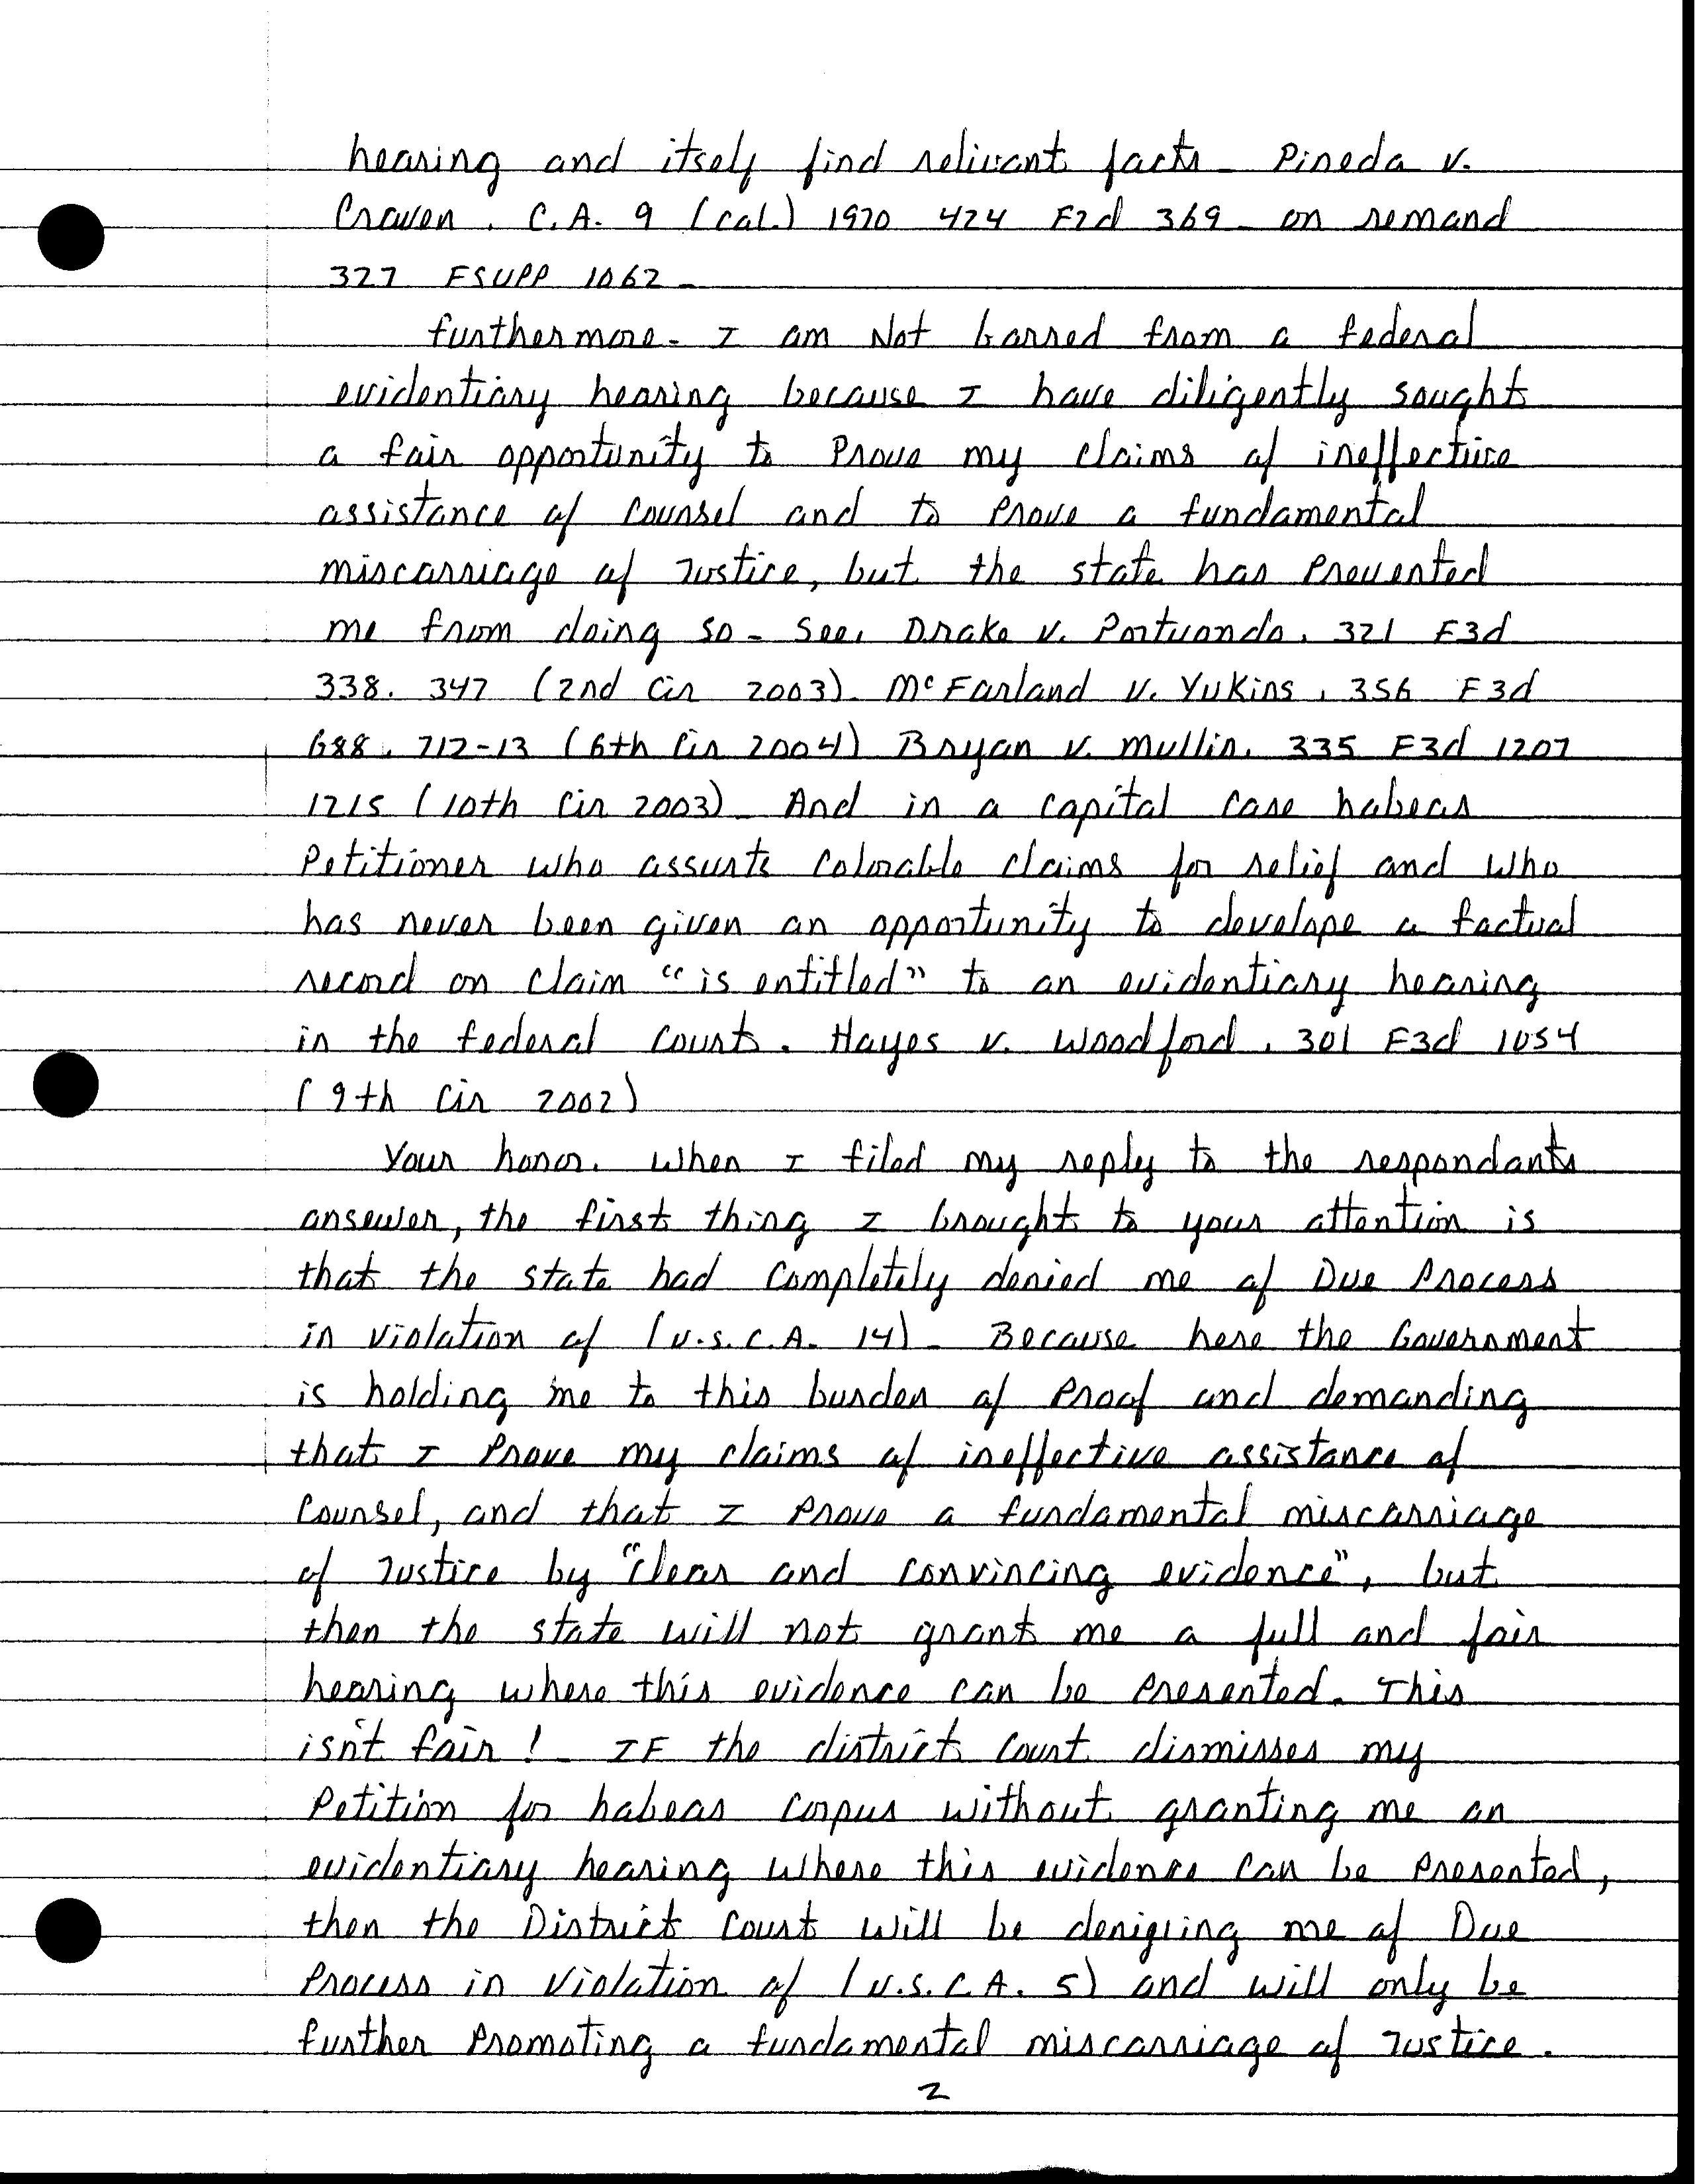 hearing and itself find relivant facts - Pineda v.
Craven, C.A. 9 (cal.) 1970 424 F2d 369 - on remand
327 FSUPP 1062 -
furthermore - I am Not barred from a federal
evidentiary hearing because I have diligently sought
a fair opportunity to Prove my claims of ineffective
assistance of counsel and to Prove a fundamental
miscarriage of Justice, but the state has Prevented
me from doing so - See, Drake v. Portuondo, 321 F3d
338, 347 (2nd Cir 2003). McFarland v. Yukins, 356 F3d
688, 712-13 (6th Cir 2004) Bryan v. Mullin, 335 F3d 1207
1215 (10th Cir 2003) - And in a capital case habeas
Petitioner who assurts Colorable claims for relief and who
has never been given an opportunity to develope a factual
record on claim "is entitled" to an evidentiary hearing
in the federal court. Hayes v. Woodford, 301 F3d 1054
(9th Cir 2002)
Your honor, when I filed my reply to the respondants
ansewer, the first thing I brought to your attention is
that the state had completely denied me of Due Process
in violation of (U.S.C.A. 14) - Because here the Government
is holding me to this burden of Proof and demanding
that I Prove my claims of ineffective assistance of
Counsel, and that I Prove a fundamental miscarriage
of Justice by "clear and convincing evidence", but
then the state will not grant me a full and fair
hearing where this evidence can be Presented. This
isn't fair! - IF the district court dismisses my
Petition for habeas corpus without granting me an
evidentiary hearing where this evidence can be Presented,
then the District Court will be denigiing me of Due
Process in violation of (U.S.C.A. 5) and will only be
further Promoting a fundamental miscarriage of Justice.
2